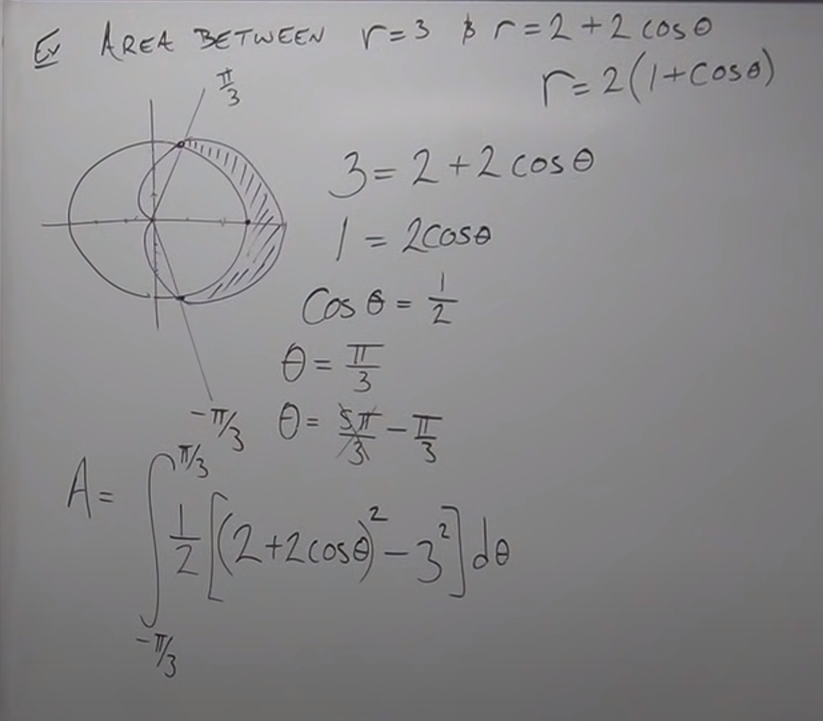 Ex AREA BETWEEN r=3 & r=2+2cosθ
r=2(1+cosθ)
π/3
3=2+2cosθ
1=2cosθ
cosθ=1/2
θ=π/3
-π/3
θ=5π/3 -π/3
A= ∫_{-π/3}^{π/3} 1/2[(2+2cosθ)²-3²]dθ